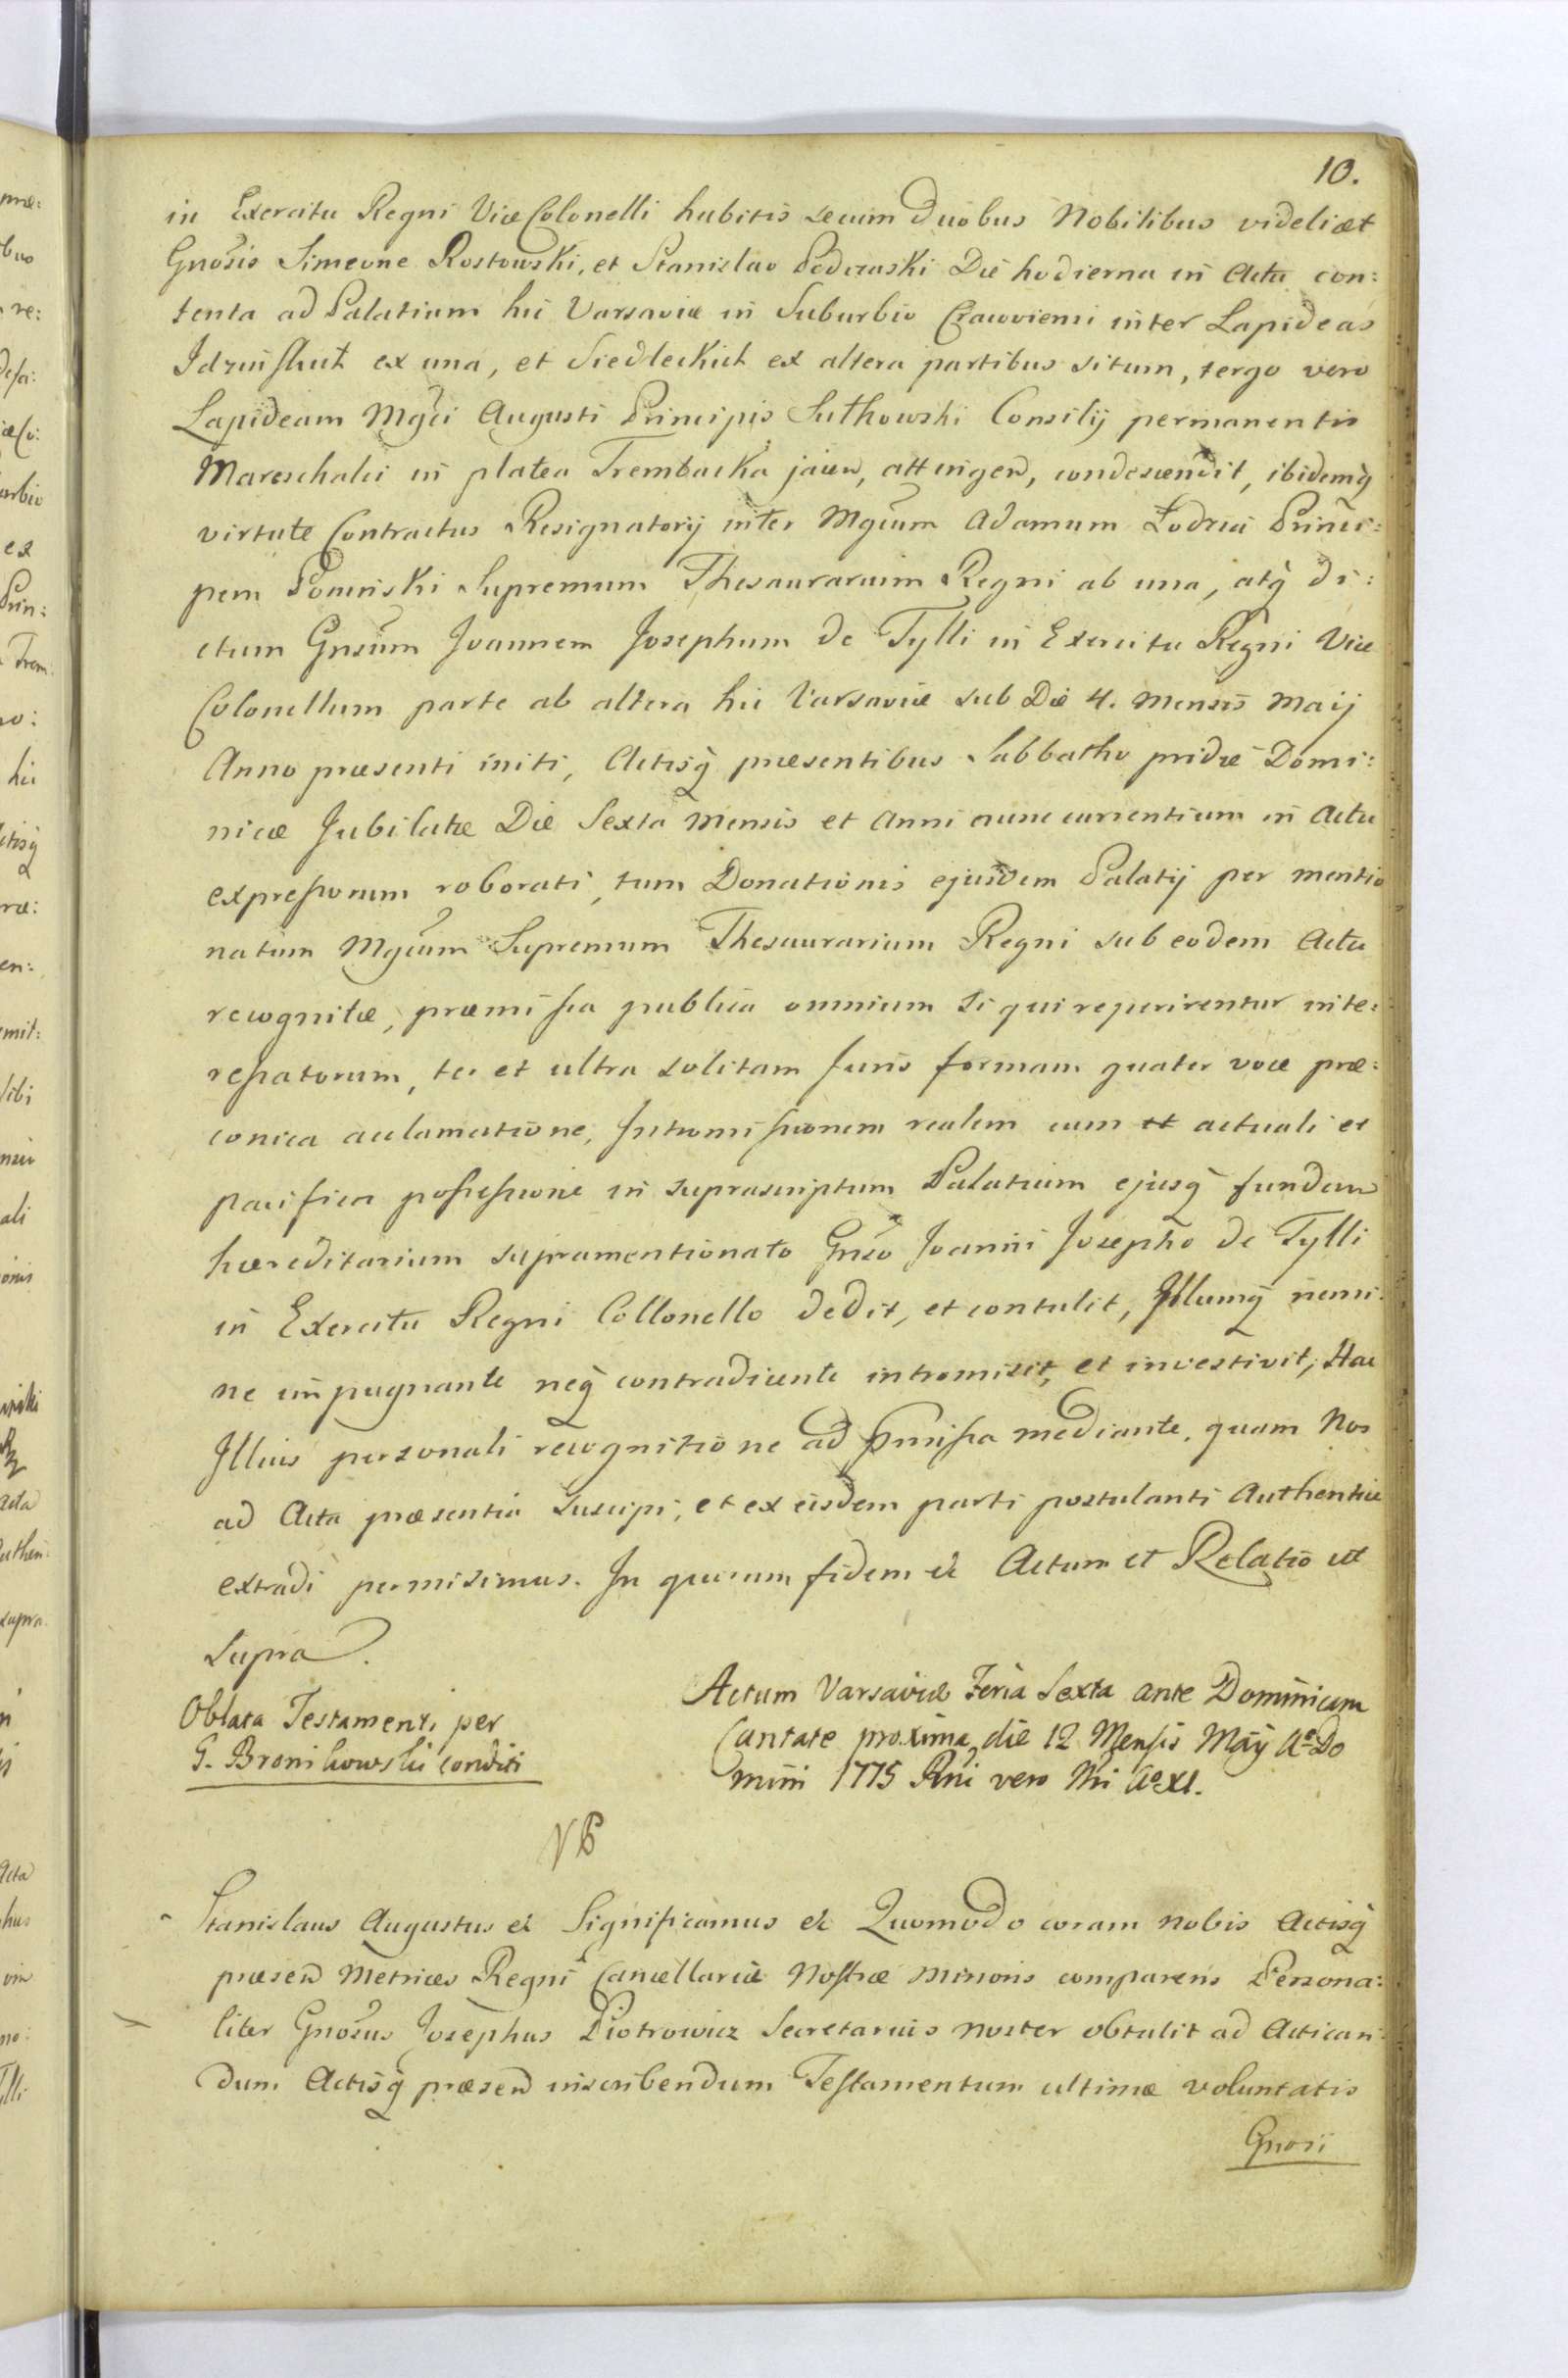 10.
in Exercitu Regni ViceColonelli habitis secum duobus Nobilibus videlicet
Gnosis Simeone Rostowski, et Stanislao Die hodierna in Actu con:
tenta ad Palatium hic Varsaviæ in Suburbio Cracoviensi inter Lapideas
ex una, et Siedleckich ex altera partibus situm, tergo vero
Lapideam Mgci Augusti Principis Sułkowski Consilij permanentis
Mareschalci in platea Trembacka jacen, attingen, condescendit, ibidemq
virtute Contractus Resignatorij inter Mgcum Adamum Łodzia Princi:
pem Poniński Supremum Thesaurarium Regni ab una, atq di:
ctum Gnsum Joannem Josephum de Tylli in Exercitu Regni Vice
Colonellum parte ab altera hic Varsaviæ sub Die 4. Mensis Maij
Anno præsenti initi, Actisq præsentibus Sabbatho pridie Domi:
nicæ Jubilate Die Sexta Mensis et Anni nunc currentium in Actu
expressorum roborati, tum Donationis ejusdem Palatij per mentio
natum Mgcum Supremum Thesaurarium Regni sub eodem Actu
recognitæ, præmissa publica omnium si qui reperirentur inte:
ressatorum, ter et ultra solitam Juris formam quater voce præ:
conica acclamatione, Intromissionem realem cum et actuali et
pacifica possessione in suprascriptum Palatium ejusq fundum
hæreditarium supramentionato Gnso Joanni Josepho de Tylli
in Exercitu Regni Collonello dedit, et contulit, Illumq nemi:
ne impugnante neq contradicente intromisit, et investivit, Hac
Illius personali recognitione ad pmissa mediante, quam Nos
ad Acta præsentia suscipi, et ex eisdem parti postulanti Authentice
extradi permisimus. In quorum fidem & Actum et Relatio ut
Supra.
Oblata Testamenti per
G. Bronikowski conditi
Actum Varsaviæ Feria Sexta ante Dominicam
Cantate proxima, die 12 Mensis Maij Ao Do
mini 1775 Rni vero Nri Ao XI.
Stanislaus Augustus & Significamus & Quomodo coram nobis Actisq
præsen Metrices Regni Cancellariæ Nostræ Minoris comparens Persona:
liter Gnosus Josephus Piotrowicz Secretarius noster obtulit ad Actican:
dum Actisq præsen inscribendum Testamentum ultimæ voluntatis
Gnosi